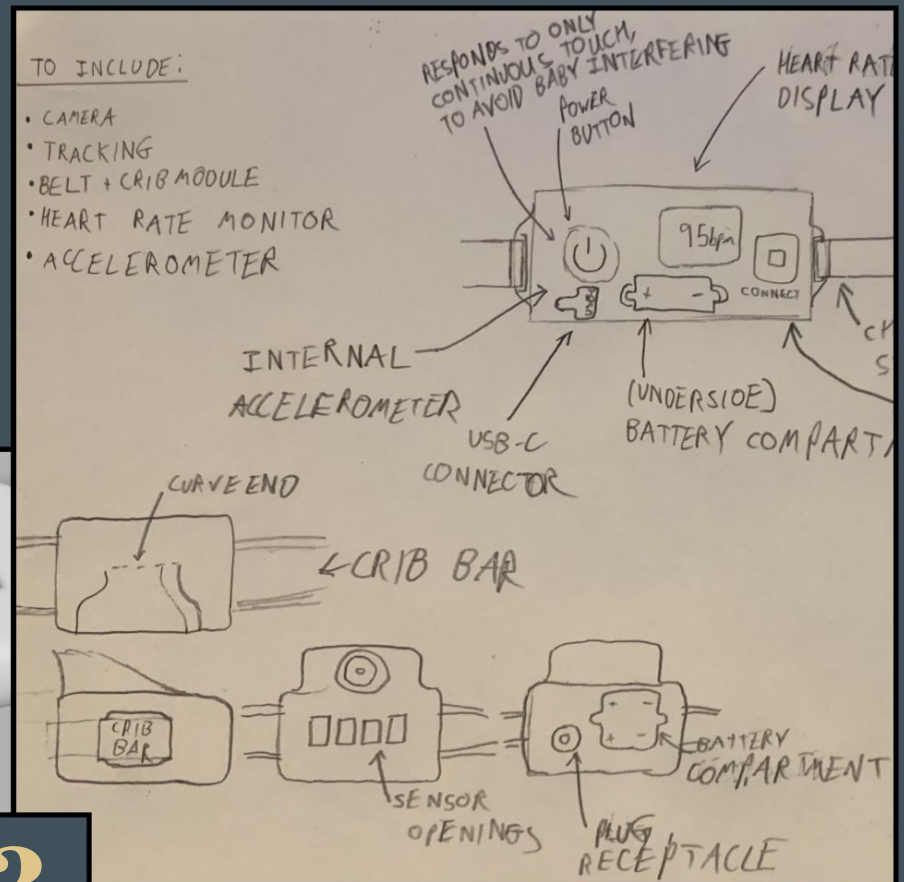 TO INCLUDE:
• CAMERA
• TRACKING
• BELT + CRIB MODULE
• HEART RATE MONITOR
• ACCELEROMETER
RESPONDS TO ONLY
CONTINUOUS TOUCH,
TO AVOID BABY INTERFERING
POWER
BUTTON
HEART RAT
DISPLAY
95bpm
CONNECT
+ -
INTERNAL
ACCELEROMETER
USB-C
CONNECTOR
(UNDERSIDE)
BATTERY COMPART
CURVE END
CRIB BAR
CRIB
BAR
SENSOR
OPENINGS
+ -
+ -
BATTERY
COMPARTMENT
PLUG
RECEPTACLE
?